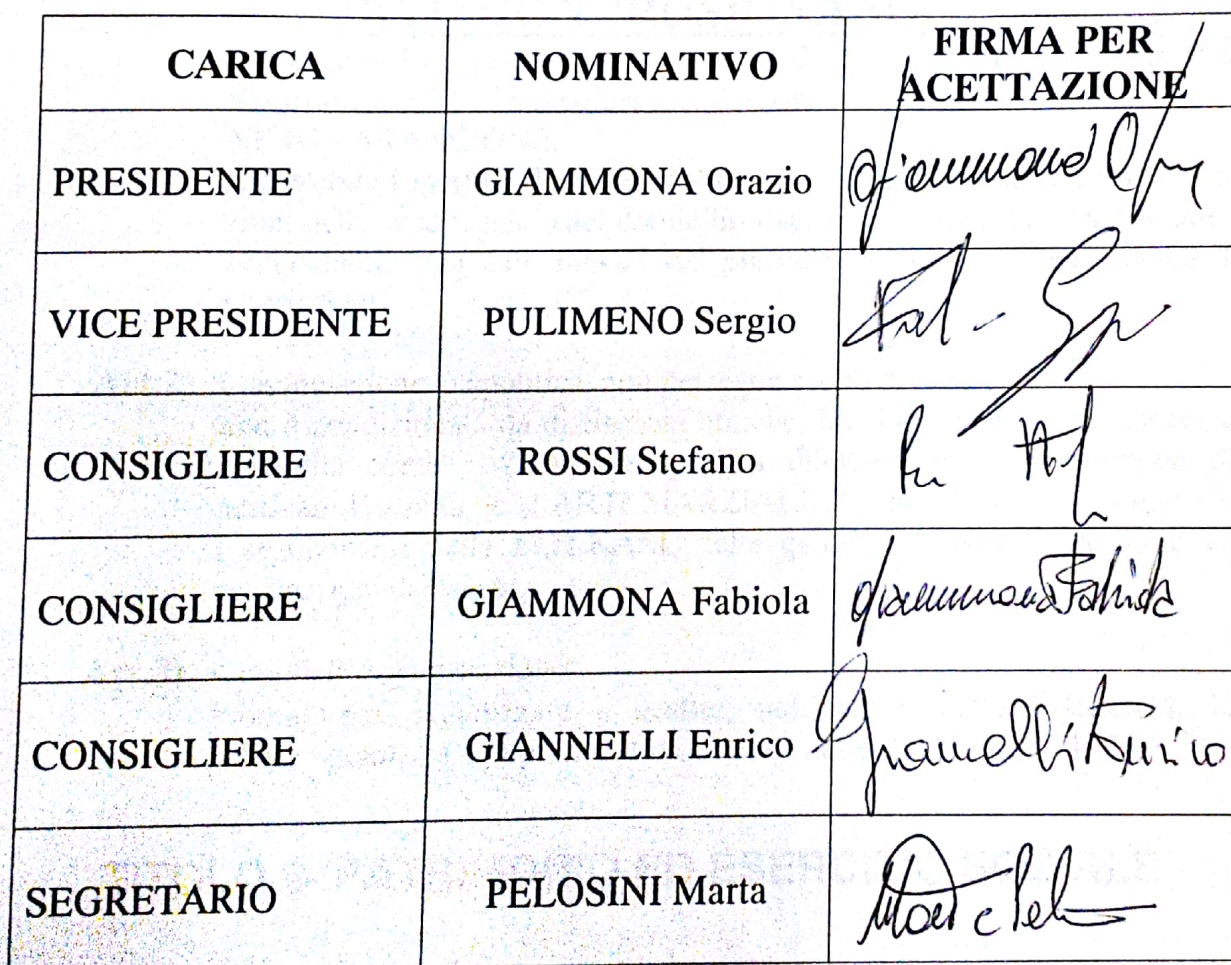 CARICA NOMINATIVO FIRMA PER
ACETTAZIONE
PRESIDENTE GIAMMONA Orazio Giammona
VICE PRESIDENTE PULIMENO Sergio
CONSIGLIERE ROSSI Stefano
CONSIGLIERE GIAMMONA Fabiola Giammona Fabiola
CONSIGLIERE GIANNELLI Enrico Giannelli Enrico
SEGRETARIO PELOSINI Marta